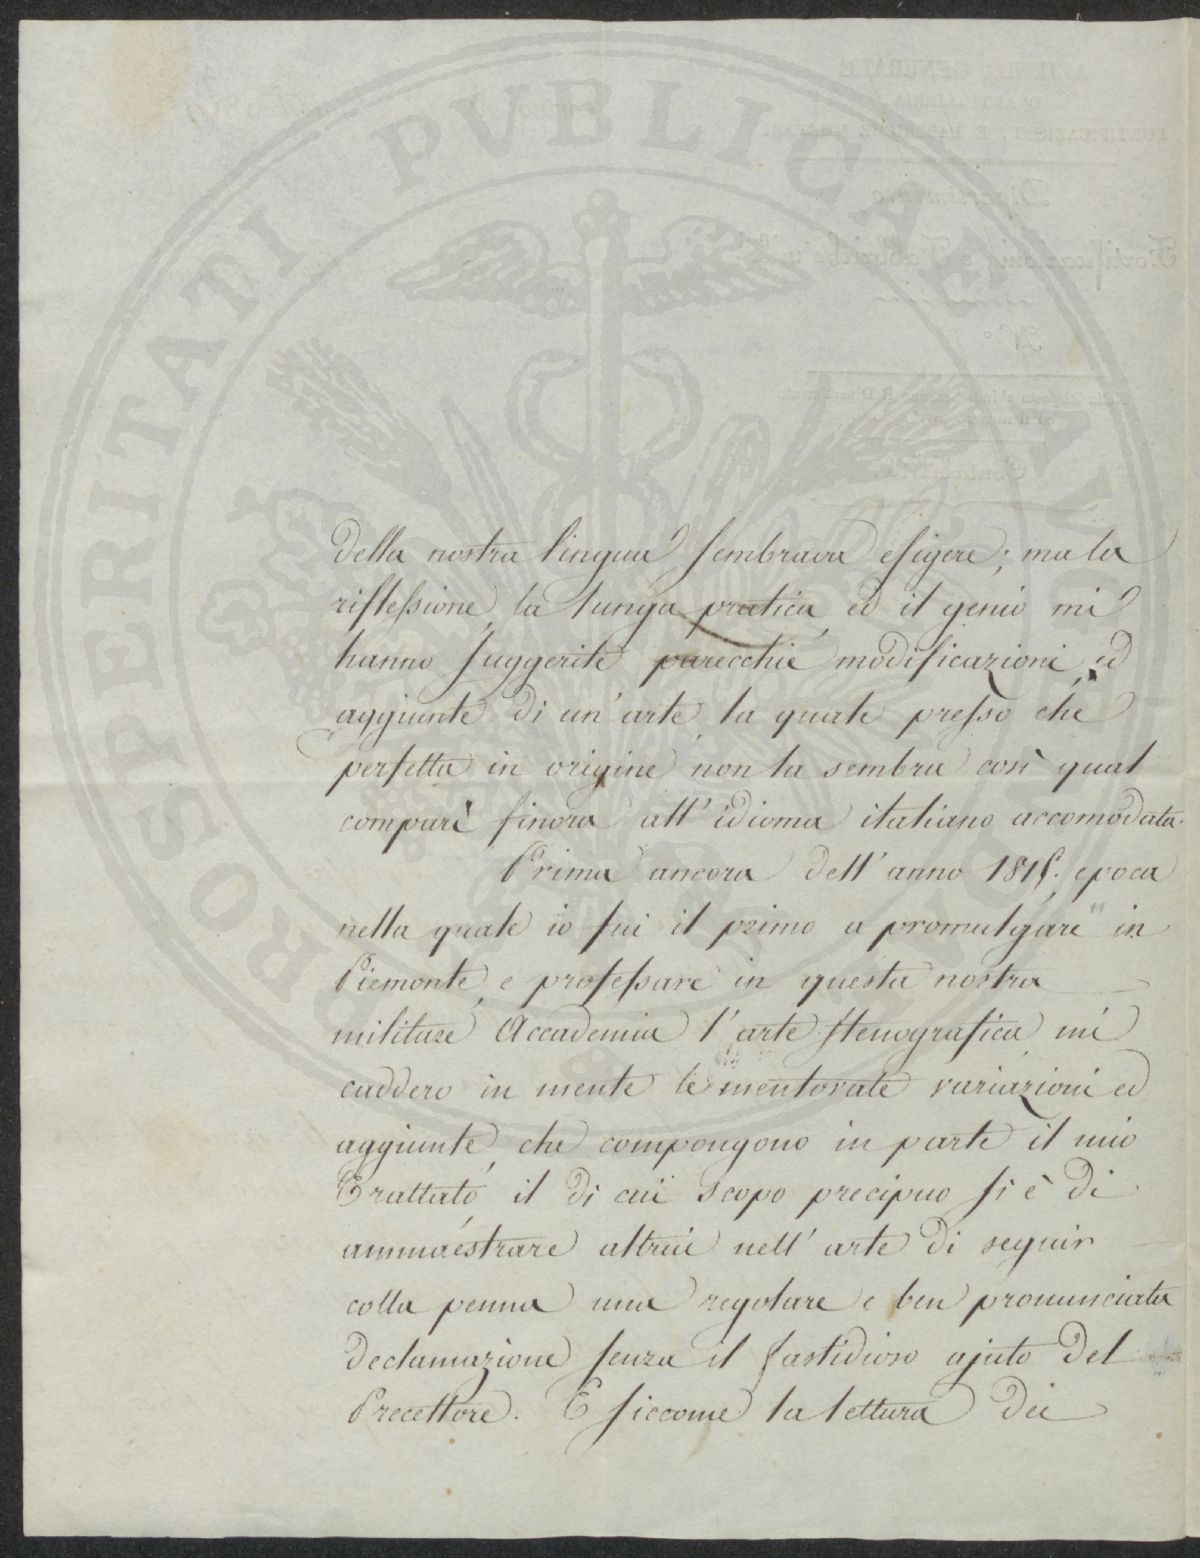 PROSPERITATI PUBLICAE AUGENDAE
della nostra lingua sembrava esigere; ma la
riflessione, la lunga pratica, ed il genio mi
hanno suggerite parecchie modificazioni, ed
aggiunte di un'arte, la quale presso che
perfetta in origine non la sembra così qual
comparì finora all'idioma italiano accomodata.
Prima ancora dell'anno 1815. epoca
nella quale io fui il primo a promulgare in
Piemonte, e professare in questa nostra
militare Accademia l'arte stenografica mi
caddero in mente le mentovate variazioni ed
aggiunte, che compongono in parte il mio
Trattato, il di cui scopo precipuo si è di
ammaestrare altrui nell'arte di seguir
colla penna una regolare e ben pronunciata
declamazione senza il fastidioso ajuto del
Precettore. E siccome la lettura dei